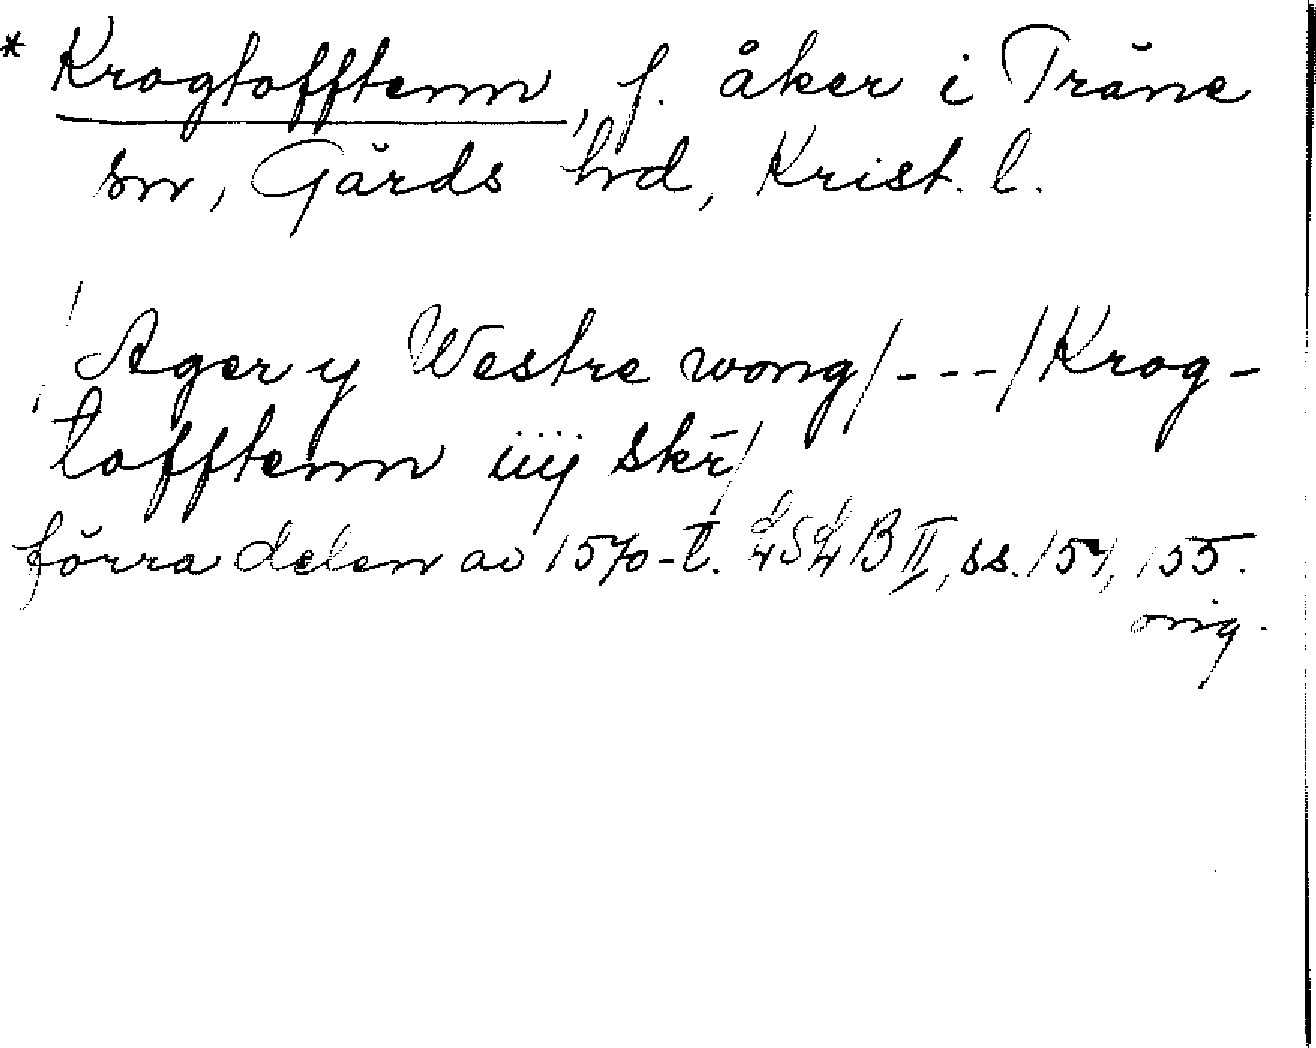 * Krogtofftenn, f. åker i Träne
sn, Gärds hd, Krist. l.
/ Ager y Westre wong/---/Krog-
tofftenn iiij skr̄/
förra delen av 1570-t. LSLB II, ss. 154, 155.
orig.